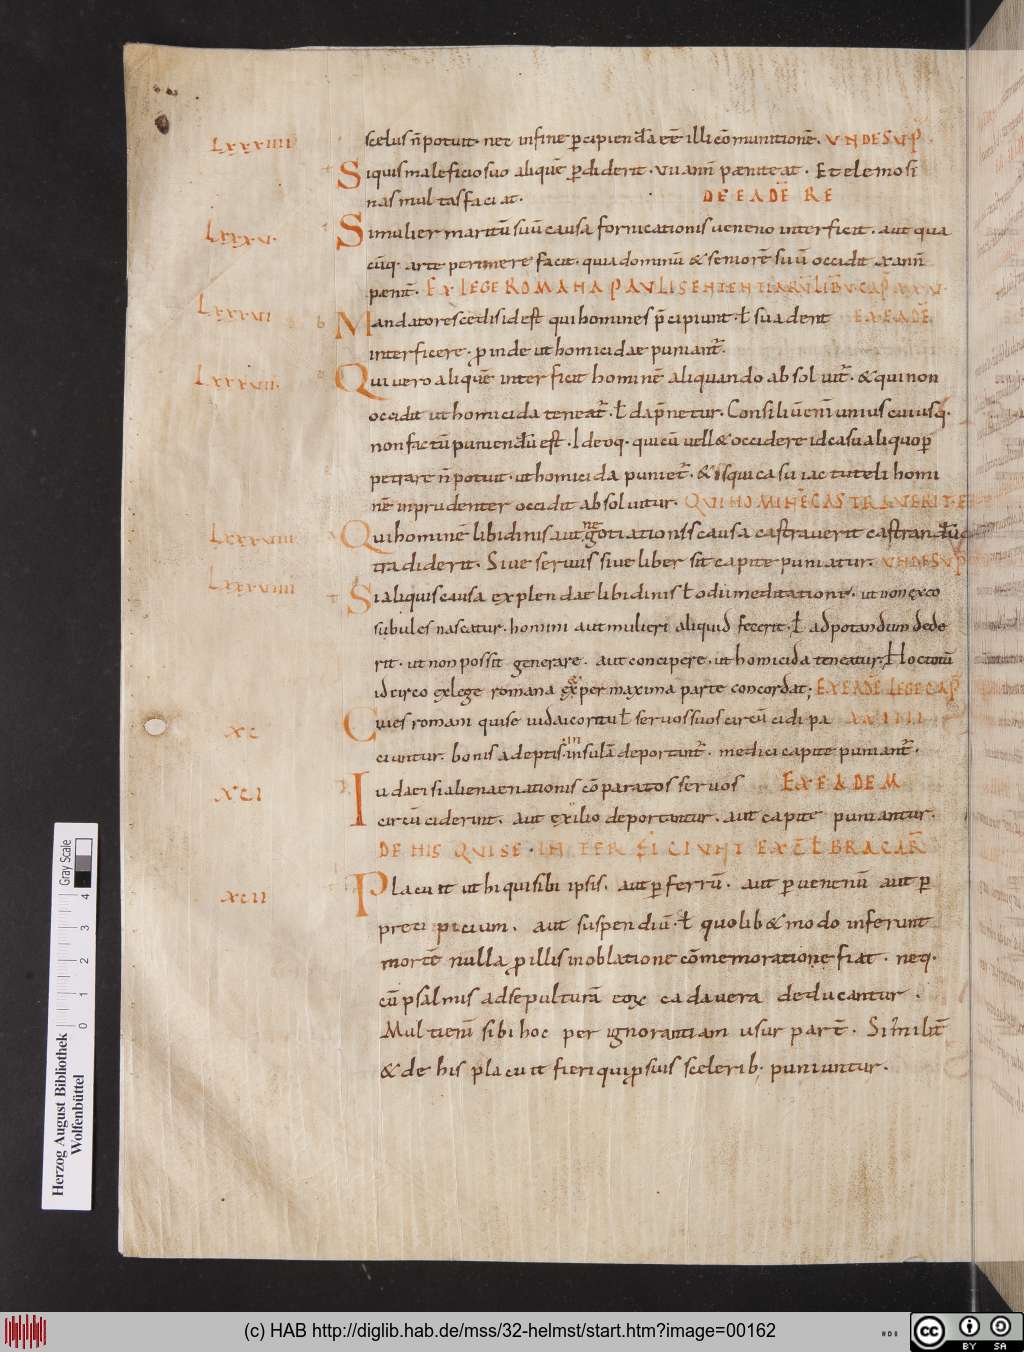 LXXXIIII scelus n̄ potuit. nec in fine p̄cipiend̄a eē illi cōmunitionē. UNDE SUP̄
Siquis maleficio suo aliquē p̄diderit. vii annī pæniteat. Et elemosi
nas multas faciat. DE EADĒ RE
LXXXV. Si mulier maritū suū causa fornicationis ueneno interficit. aut qua
cūq. arte perimere facit. quia dominū & seniorē suū occidit x annī
penit̄. EX LEGE ROMANA PAULI SENTENTIARŪ LIB̄ V CAP̄
LXXXVI Mandatores cedis id est qui homines p̄cipiunt. ł suadent EX EADĒ
interficere. proinde ut homicidae puniant̄.
LXXXVII. Qui uero aliquē interficit hominē aliquando absoluit̄. & qui non
occidit ut homicida teneat̄. ł dap̄netur. Consiliū enī unius cuiusq.
non factū puniend̄u est. Ideoq. qui cū uell& occidere id casu aliquo p̄
petrare n̄ potuit. ut homicida puniet̄. & is qui casu iactu teli homi
nē inprudenter occidit absoluitur. QUI HOMINĒ CASTRAUERIT.
LXXXVIII Qui hominē libidinis aut negotiationis causa castrauerit castrand̄u
tradiderit. Siue seruus siue liber sit capite puniatur. UNDE SUP̄
LXXXVIIII Si aliquis causa explendae libidinis ł odii meditatione. ut non ex eo
subules nascatur. homini aut mulieri aliquid fecerit. ł ad potandum dede
rit. ut non possit generare. aut concipere. ut homicida teneatur. Hoc totū
idcirco ex lege romana & per maxima parte concordat; EX EADĒ LEGE CAP̄
XC Ciues romani qui se iudaico ritu ł seruos suos circūcidi pa XXIIII
ciuntur. bonis adeptis. in insulā deportant̄. medici capite puniant̄.
XCI Iudaei si alienae nationis cōparatos seruos EX EADEM
circūciderint. aut exilio deportantur. aut capite puniantur.
DE HIS QUI SE INTERFICIUNT EX C̄ŁBRACAR̄
XCII Placuit ut hi qui sibi ipsis. aut p̄ ferrū. aut p̄ uenenū aut p̄
precipicium. aut suspendiū. ł quolib& modo inferunt
mortē nulla p̄ illis in oblatione cōmemoratione fiat. neq.
cū psalmis ad sepulturā eox cadauera deducantur.
Multi enī sibi hoc per ignorantiam usurpart̄. Similit̄
& de his placuit fieri qui p̄ suis scelerib. puniuntur.
Herzog August Bibliothek
Wolfenbüttel
0 1 2 3 4
Gray Scale
(c) HAB http://diglib.hab.de/mss/32-helmst/start.htm?image=00162
HDB
cc BY SA